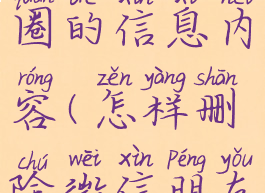 圈的信息内
róng zěn yàng shān
容(怎样删
chú wēi xìn péng yǒu
除微信朋友